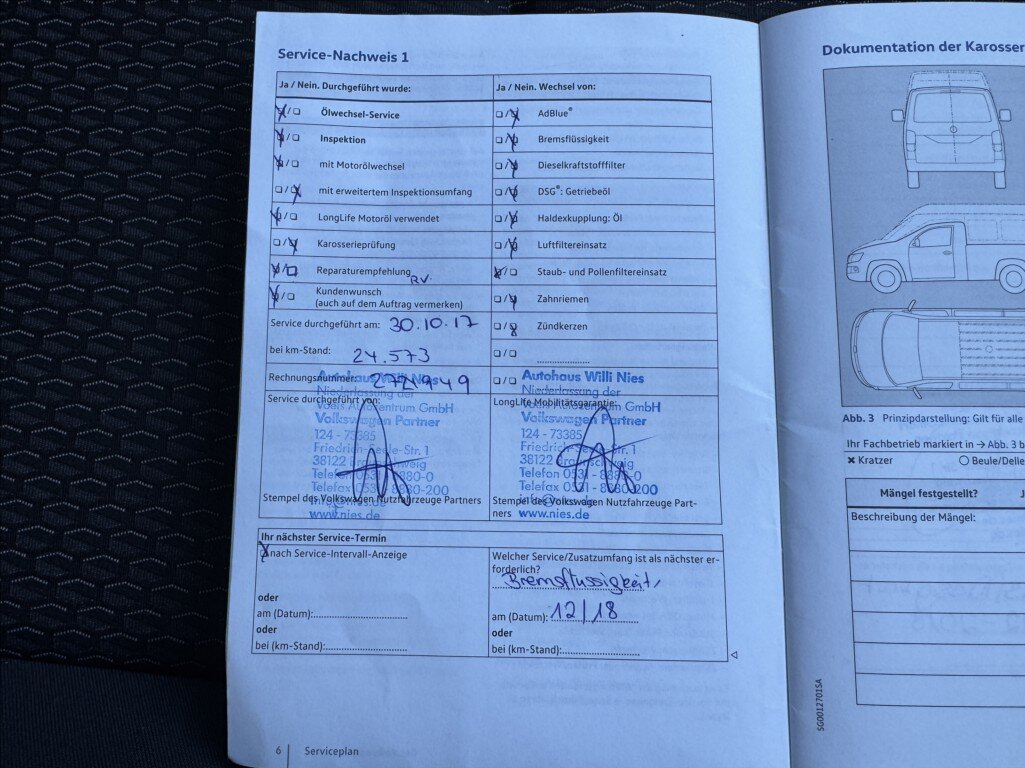 Service-Nachweis 1
Ja / Nein. Durchgeführt wurde:
Ja / Nein. Wechsel von:
Ölwechsel-Service
AdBlue®
Inspektion
Bremsflüssigkeit
mit Motorölwechsel
Dieselkraftstofffilter
mit erweitertem Inspektionsumfang
DSG®: Getriebeöl
LongLife Motoröl verwendet
Haldexkupplung: Öl
Karosserieprüfung
Luftfiltereinsatz
Reparaturempfehlung
Staub- und Pollenfiltereinsatz
RV.
Kundenwunsch
(auch auf dem Auftrag vermerken)
Zahnriemen
Service durchgeführt am: 30.10.17
Zündkerzen
bei km-Stand: 24.573
Rechnungsnummer:
Service durchgeführt von:
Autohaus Willi Nies
Niederlassung der
Voets Autozentrum GmbH
Volkswagen Partner
124 - 73385
Friedrich-Seele-Str. 1
38122 Braunschweig
Telefon 0531 - 8880-0
Telefax 0531 - 8880-200
info@nies.de
www.nies.de
Stempel des Volkswagen Nutzfahrzeuge Partners
LongLife Mobilitätsgarantie:
Autohaus Willi Nies
Niederlassung der
Voets Autozentrum GmbH
Volkswagen Partner
124 - 73385
Friedrich-Seele-Str. 1
38122 Braunschweig
Telefon 0531 - 8880-0
Telefax 0531 - 8880-200
info@nies.de
www.nies.de
Stempel des Volkswagen Nutzfahrzeuge Part-
ners
Ihr nächster Service-Termin
nach Service-Intervall-Anzeige
oder
am (Datum):
oder
bei (km-Stand):
Welcher Service/Zusatzumfang ist als nächster er-
forderlich?
Bremsflüssigkeit,
am (Datum): 12/18
oder
bei (km-Stand):
6 Serviceplan
Dokumentation der Karosser
Abb. 3 Prinzipdarstellung: Gilt für alle
Ihr Fachbetrieb markiert in → Abb. 3 b
Kratzer
Beule/Delle
Mängel festgestellt?
J
Beschreibung der Mängel:
SG0012701SA